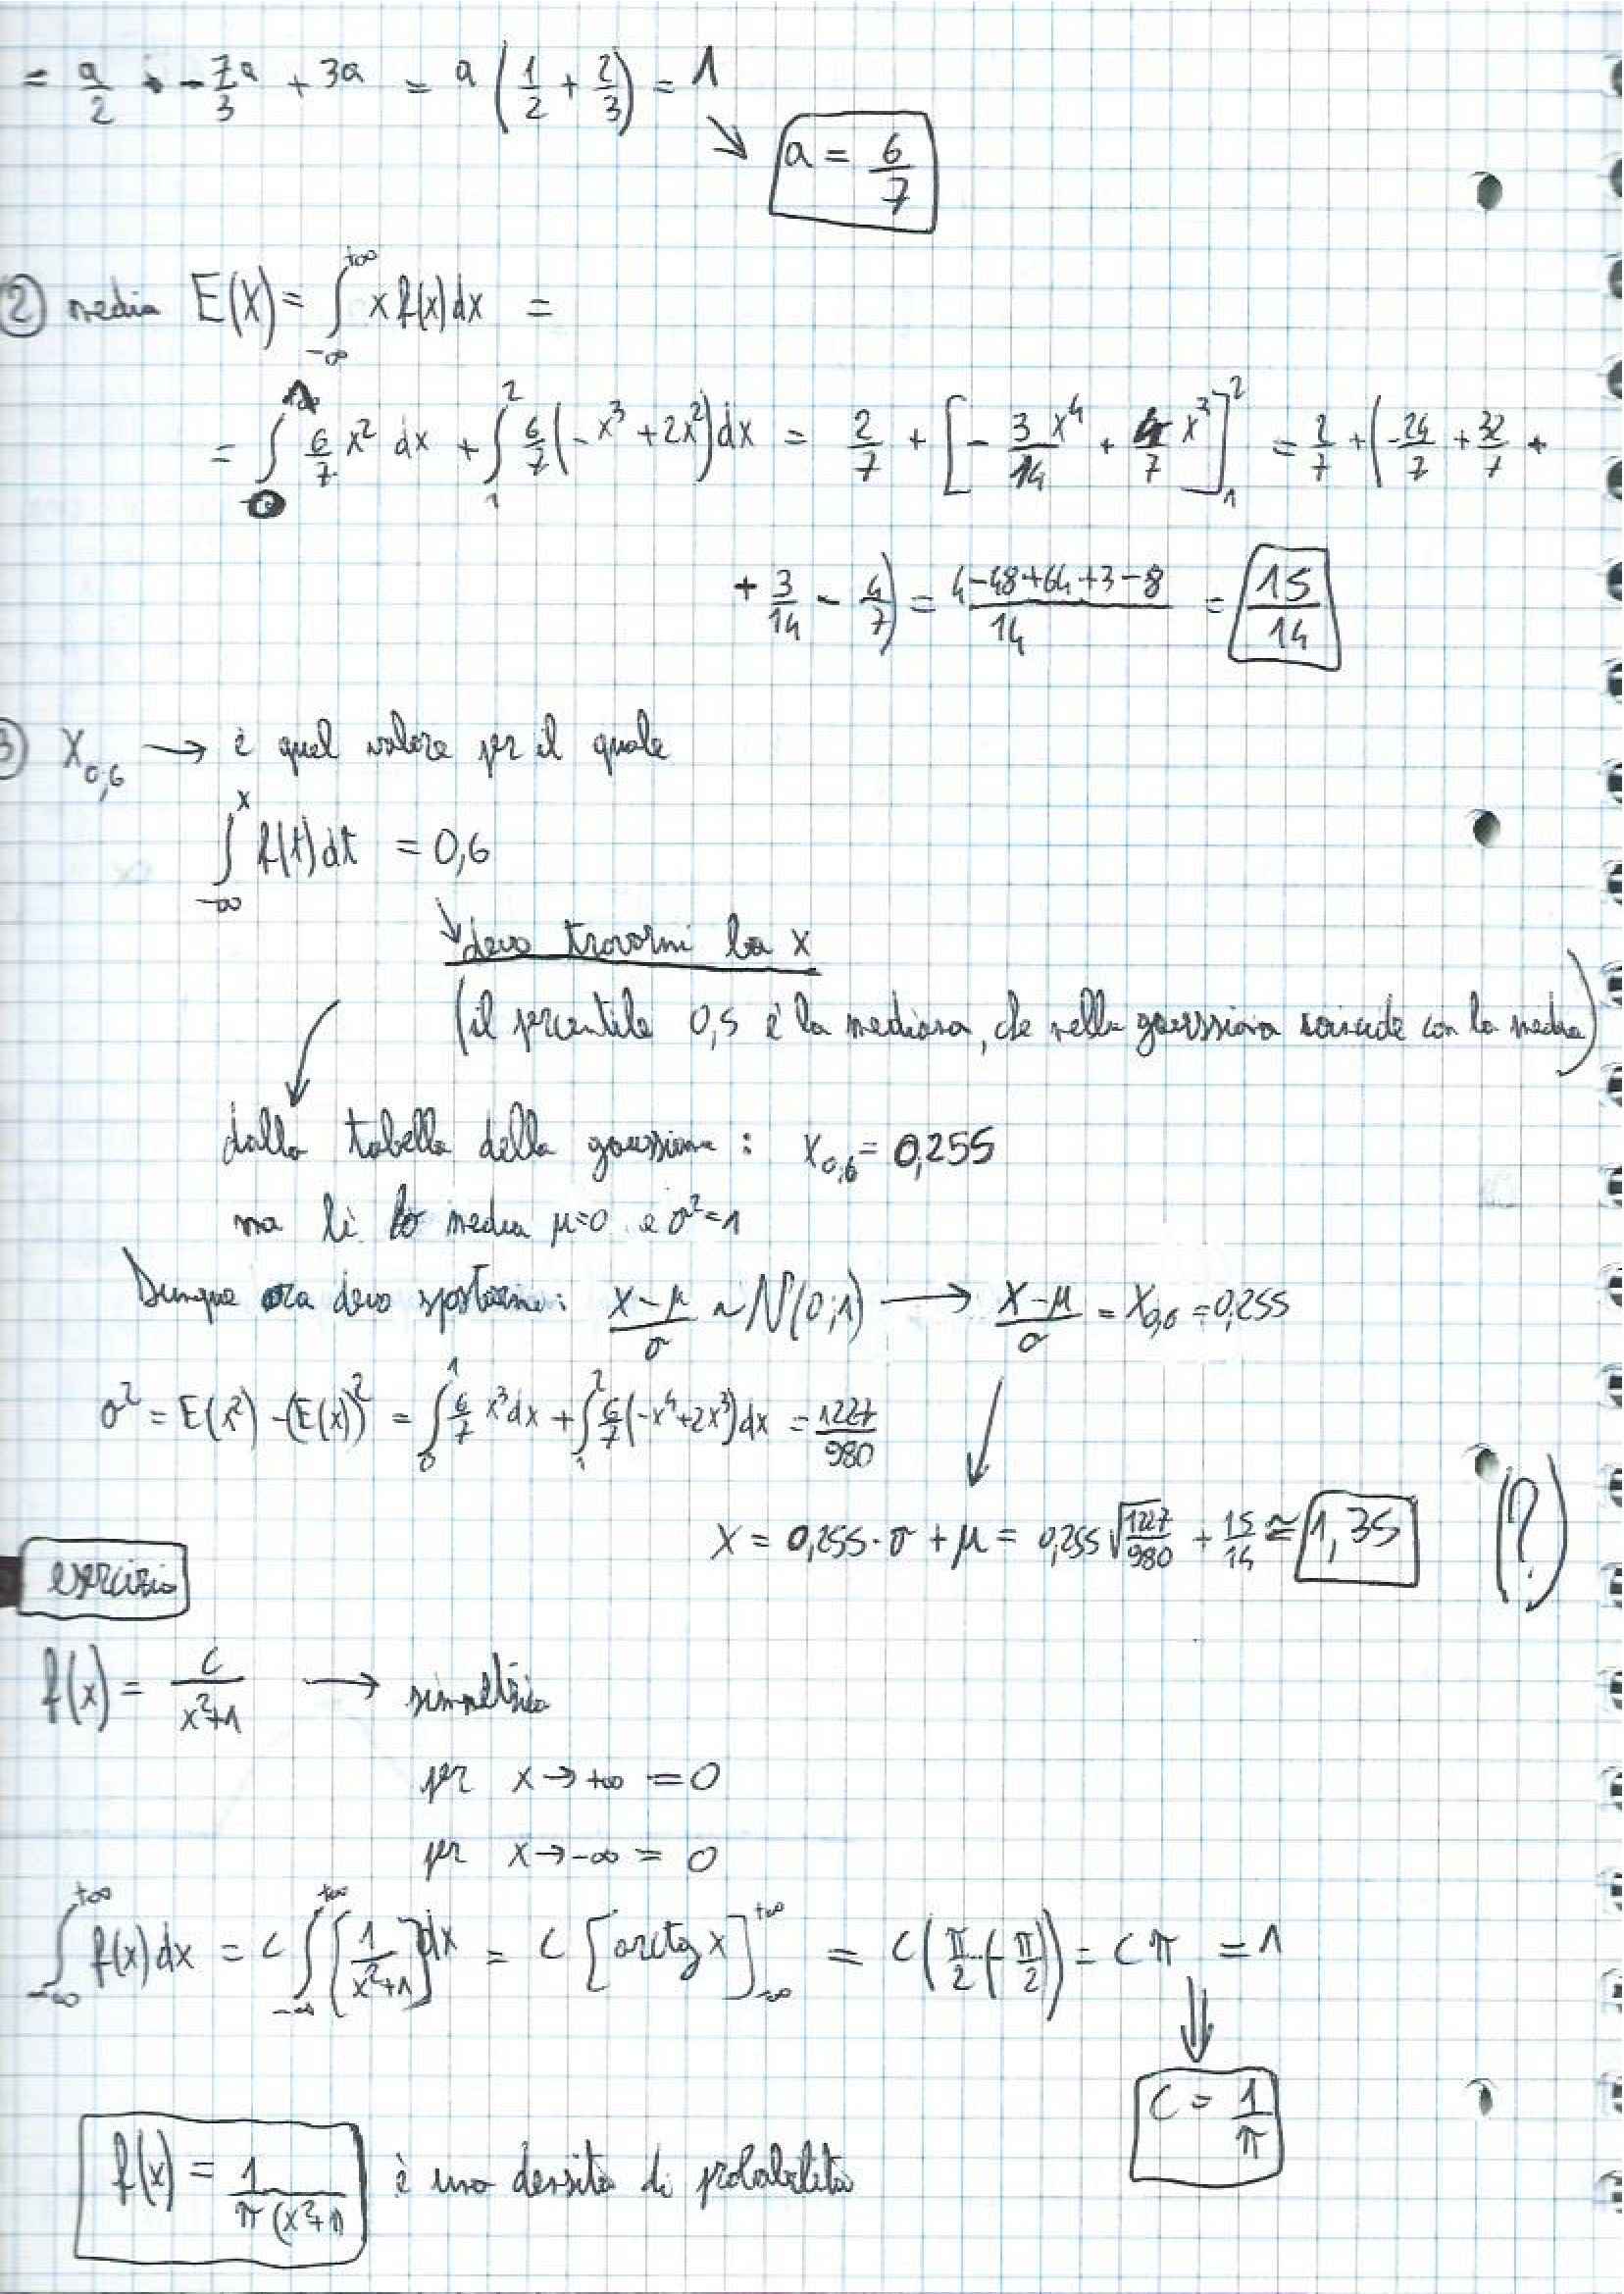 = a/2 - 7a/3 + 3a = a (1/2 + 2/3) = 1
↘ a = 6/7
② media E(X) = ∫_{-∞}^{+∞} x f(x) dx =
= ∫_0^1 6/7 x² dx + ∫_1^2 6/7 (-x³ + 2x²) dx = 2/7 + [-3x⁴/14 + 4/7 x³]_1^2 = 2/7 + (-24/7 + 32/7 +
+ 3/14 - 4/7) = 4-48+64+3-8/14 = 15/14
3) X_{0,6} → è quel valore per il quale
∫_{-∞}^{x} f(t) dt = 0,6
↘ devo trovarmi la x
(il percentile 0,5 è la mediana, che nella gaussiana coincide con la media)
dalla tabella della gaussiana : X_{0,6} = 0,255
ma lì la media μ=0 e σ²=1
Dunque ora devo spostarmi: X-μ/σ ~ N(0;1) → X-μ/σ = X_{0,6} = 0,255
σ² = E(x²) - (E(x))² = ∫_0^1 6/7 x³ dx + ∫_1^2 6/7 (-x⁴+2x³) dx = 1227/980
X = 0,255·σ + μ = 0,255 √1227/980 + 15/14 ≅ 1,35 (?)
esercizio
f(x) = c/x²+1 → simmetrica
per x → +∞ = 0
per x → -∞ = 0
∫_{-∞}^{+∞} f(x) dx = c ∫_{-∞}^{+∞} [1/x²+1] dx = c [arctg x]_{-∞}^{+∞} = c (π/2 - (-π/2)) = cπ = 1
⇓
c = 1/π
f(x) = 1/π(x²+1) è una densità di probabilità